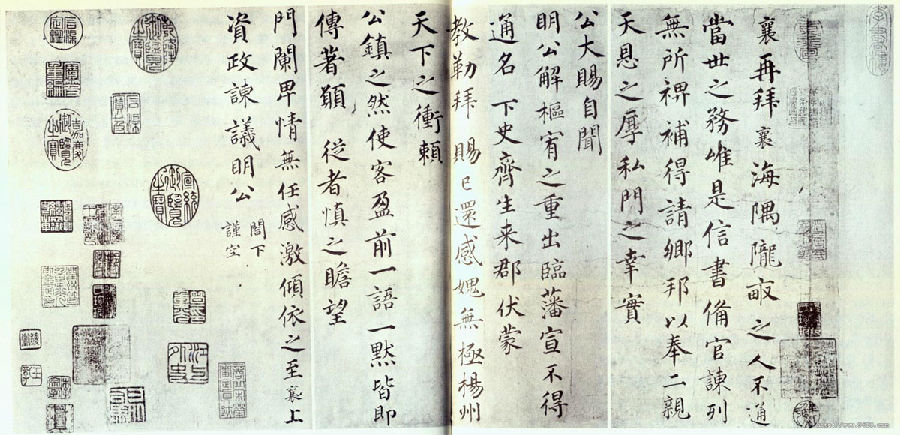 襄再拜襄海隅隴畝之人不通
當世之務唯是信書備官諫列
無所裨補得請鄉邦以奉二親
天恩之厚私門之幸實
公大賜自聞
明公解樞宥之重出臨藩宣不得
通名 下史齊生来郡伏蒙
教勒拜 賜已還感愧無極楊州
天下之衝頼
公鎮之然使客盈前一語一黙皆即
傳著願 従者慎之瞻望
門闌卑情無任感激傾依之至襄上
資政諫議明公 閤下
謹空
乾隆御覽之寶
嘉慶御覽之寶
宣統御覽之寶